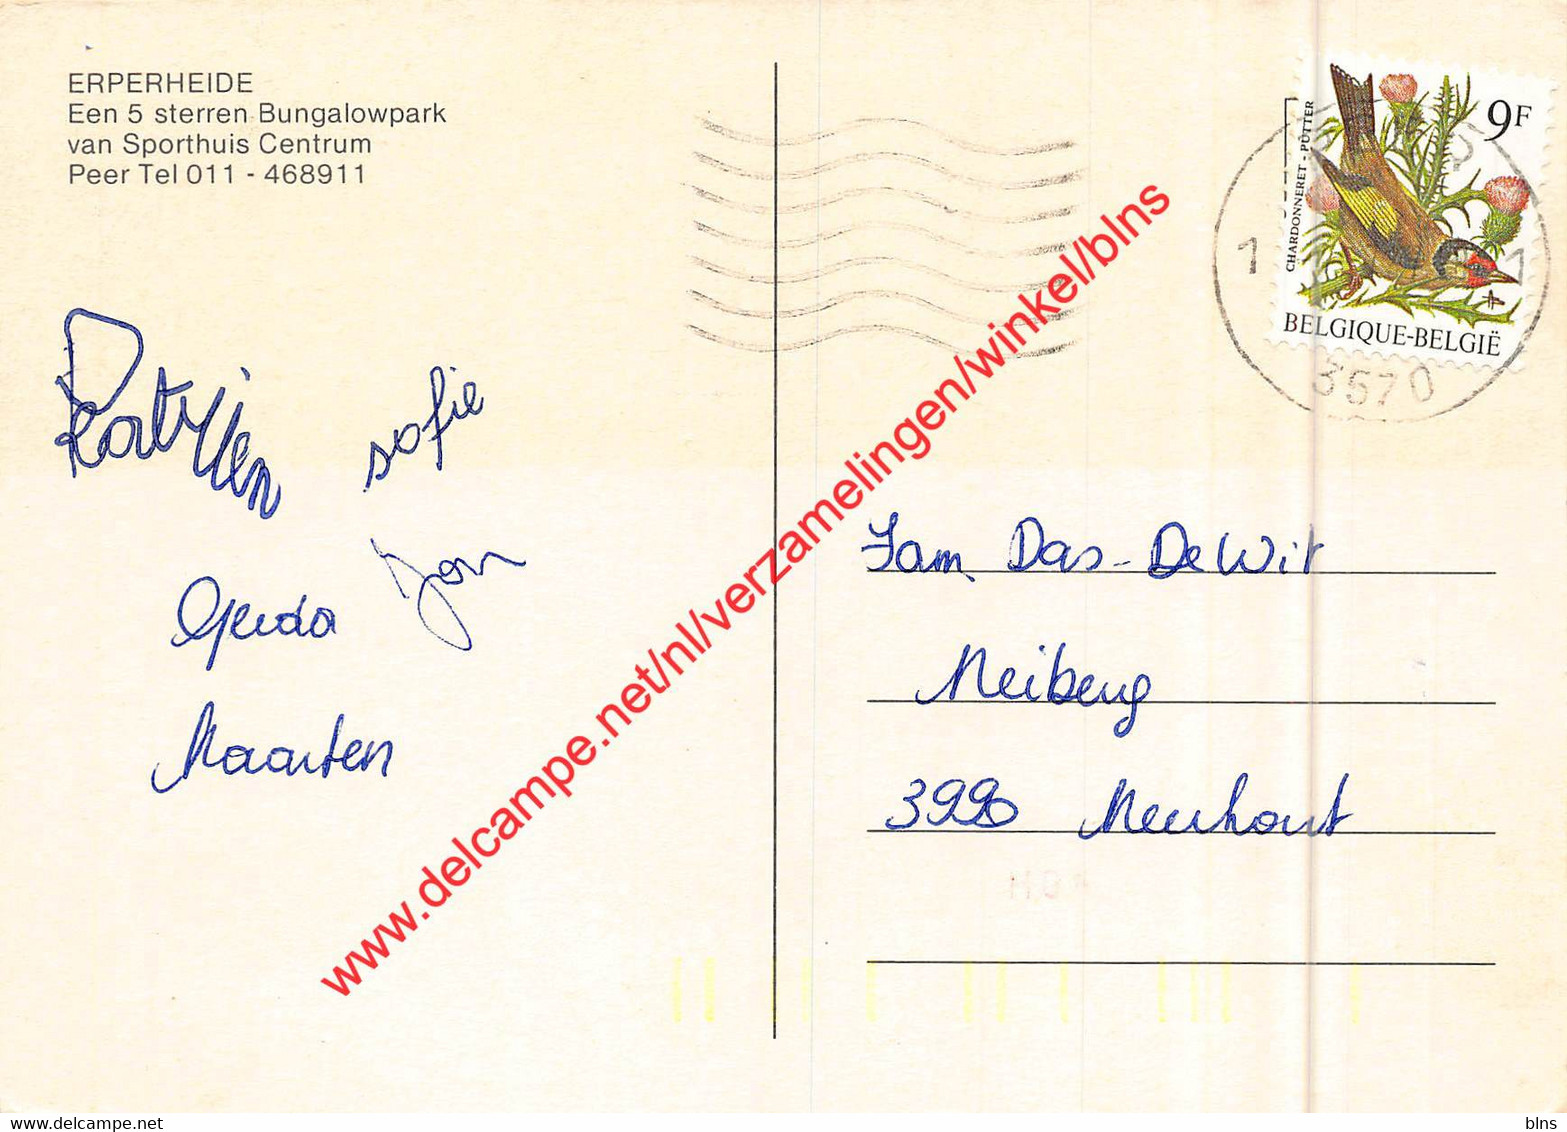 ERPERHEIDE
Een 5 sterren Bungalowpark
van Sporthuis Centrum
Peer Tel 011 - 468911
9F
CHARDONNERET - PUTTER
BELGIQUE-BELGIË
1
3570
Katrijen
sofie
Jan
Gerda
Maarten
Fam. Das-DeWit
Meiberg
3990 Meerhout
www.delcampe.net/nl/verzamelingen/winkel/blns
© www.delcampe.net
blns